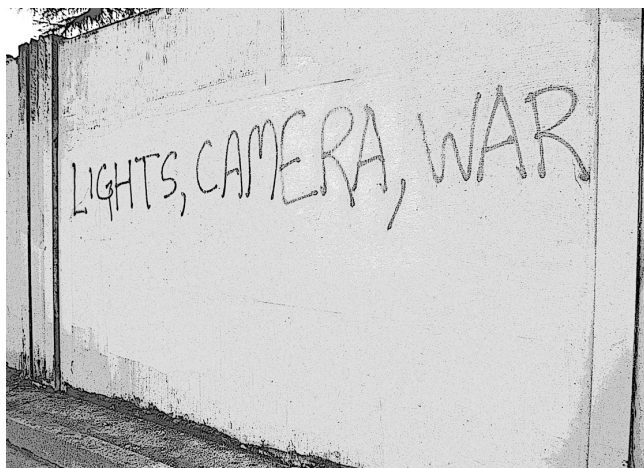 LIGHTS, CAMERA, WAR